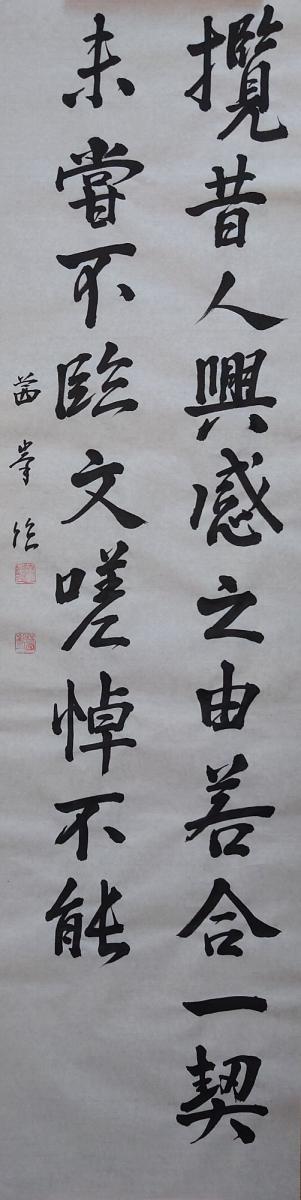 攬昔人興感之由若合一契
未嘗不臨文嗟悼不能
茜峯臨